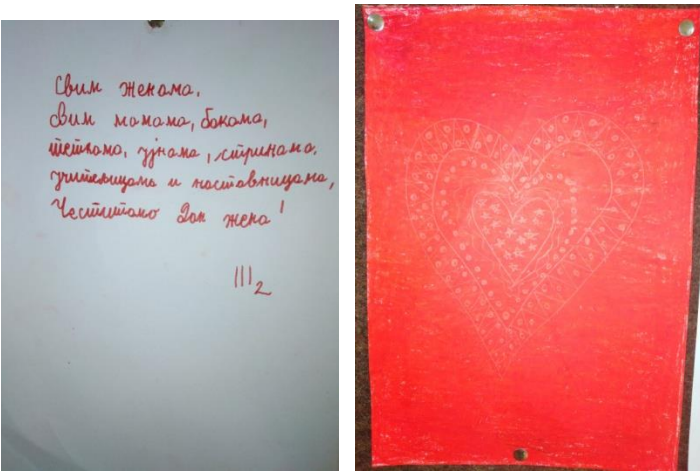 Свим женама,
Свим мамама, бакама,
теткама, ујнама, стринама,
учитељицама и наставницама,
Честитамо Дан жена!
III2